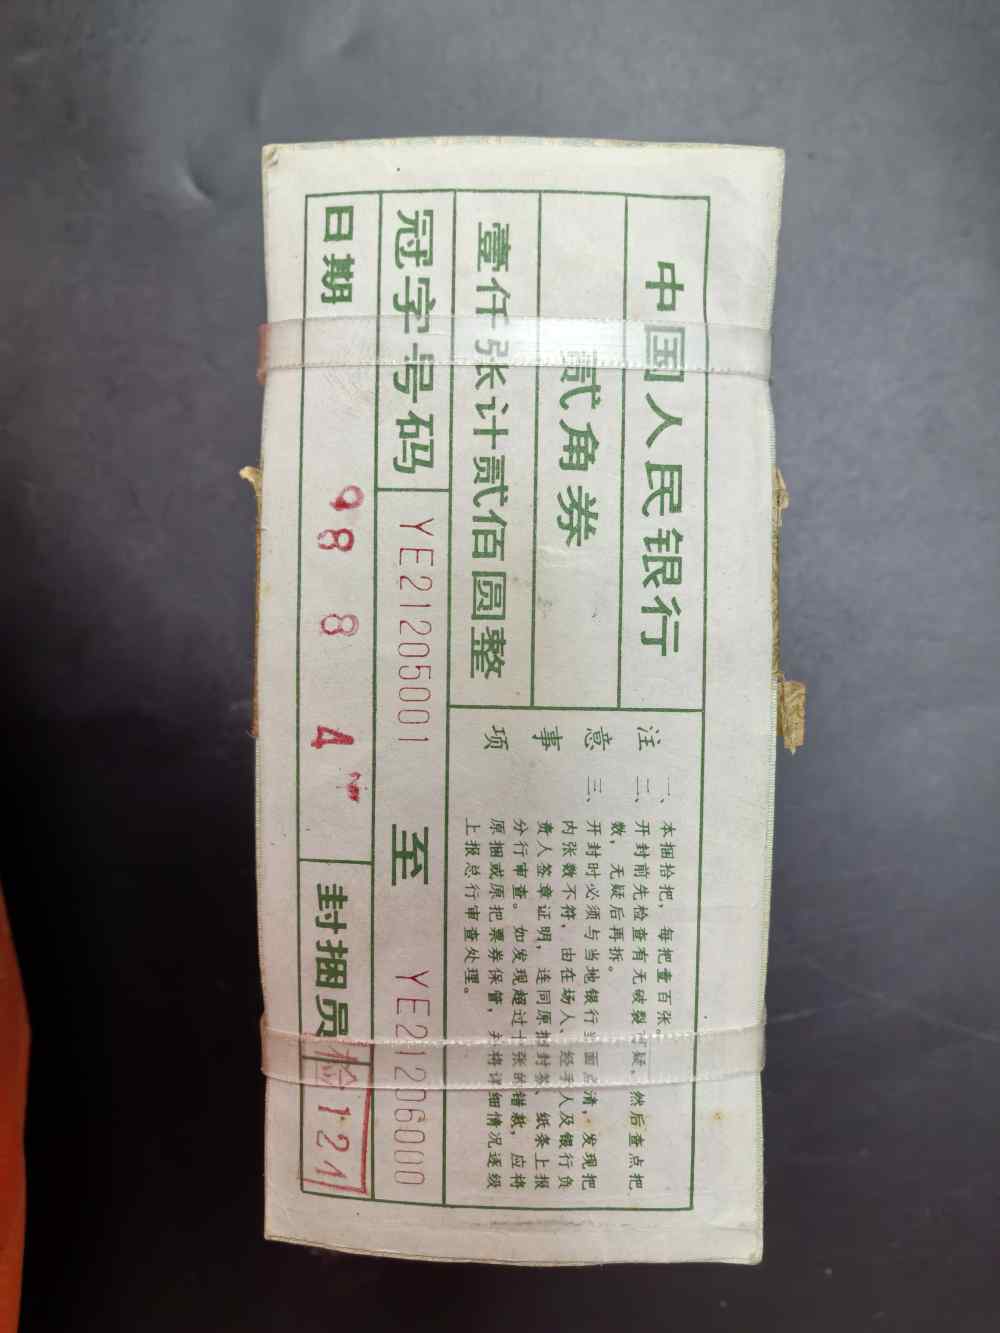 中国人民银行
贰角券
壹仟张计贰佰圆整
注意事项
一、本捆拾把，每把壹百张。
二、开封前先检查有无破裂可疑、然后查点把
数，无疑后再拆。
三、开封时必须与当地银行当面点清，发现把
内张数不符，由在场人、经手人及银行负
责人签章证明，连同原捆封签、纸条上报
分行审查。如发现超过十张的错款，应将
原捆或原把票券保管，并将详细情况逐级
上报总行审查处理。
冠字号码 YE21205001 至 YE21206000
日期 98 8 4 封捆员 检124